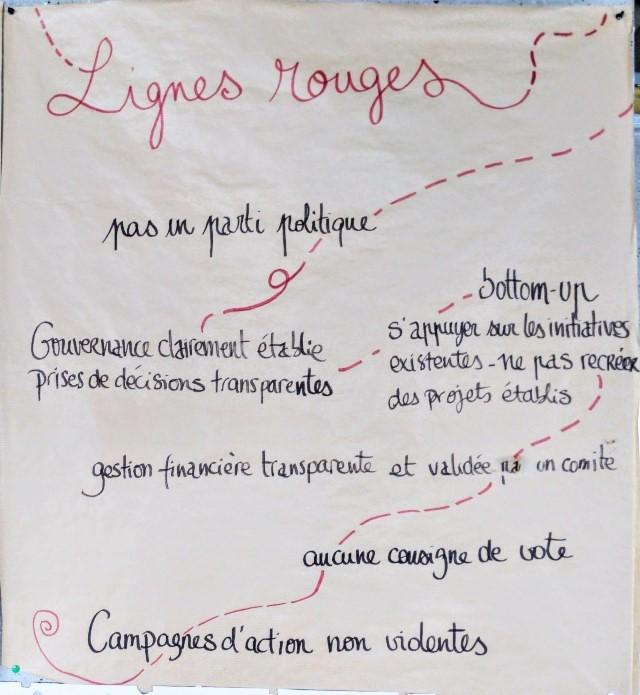 Lignes rouges
pas un parti politique
bottom-up
s'appuyer sur les initiatives
existentes - ne pas recréer
des projets établis
Gouvernance clairement établie
prises de décisions transparentes
gestion financière transparente et validée un comité
aucune consigne de vote
Campagnes d'action non violentes